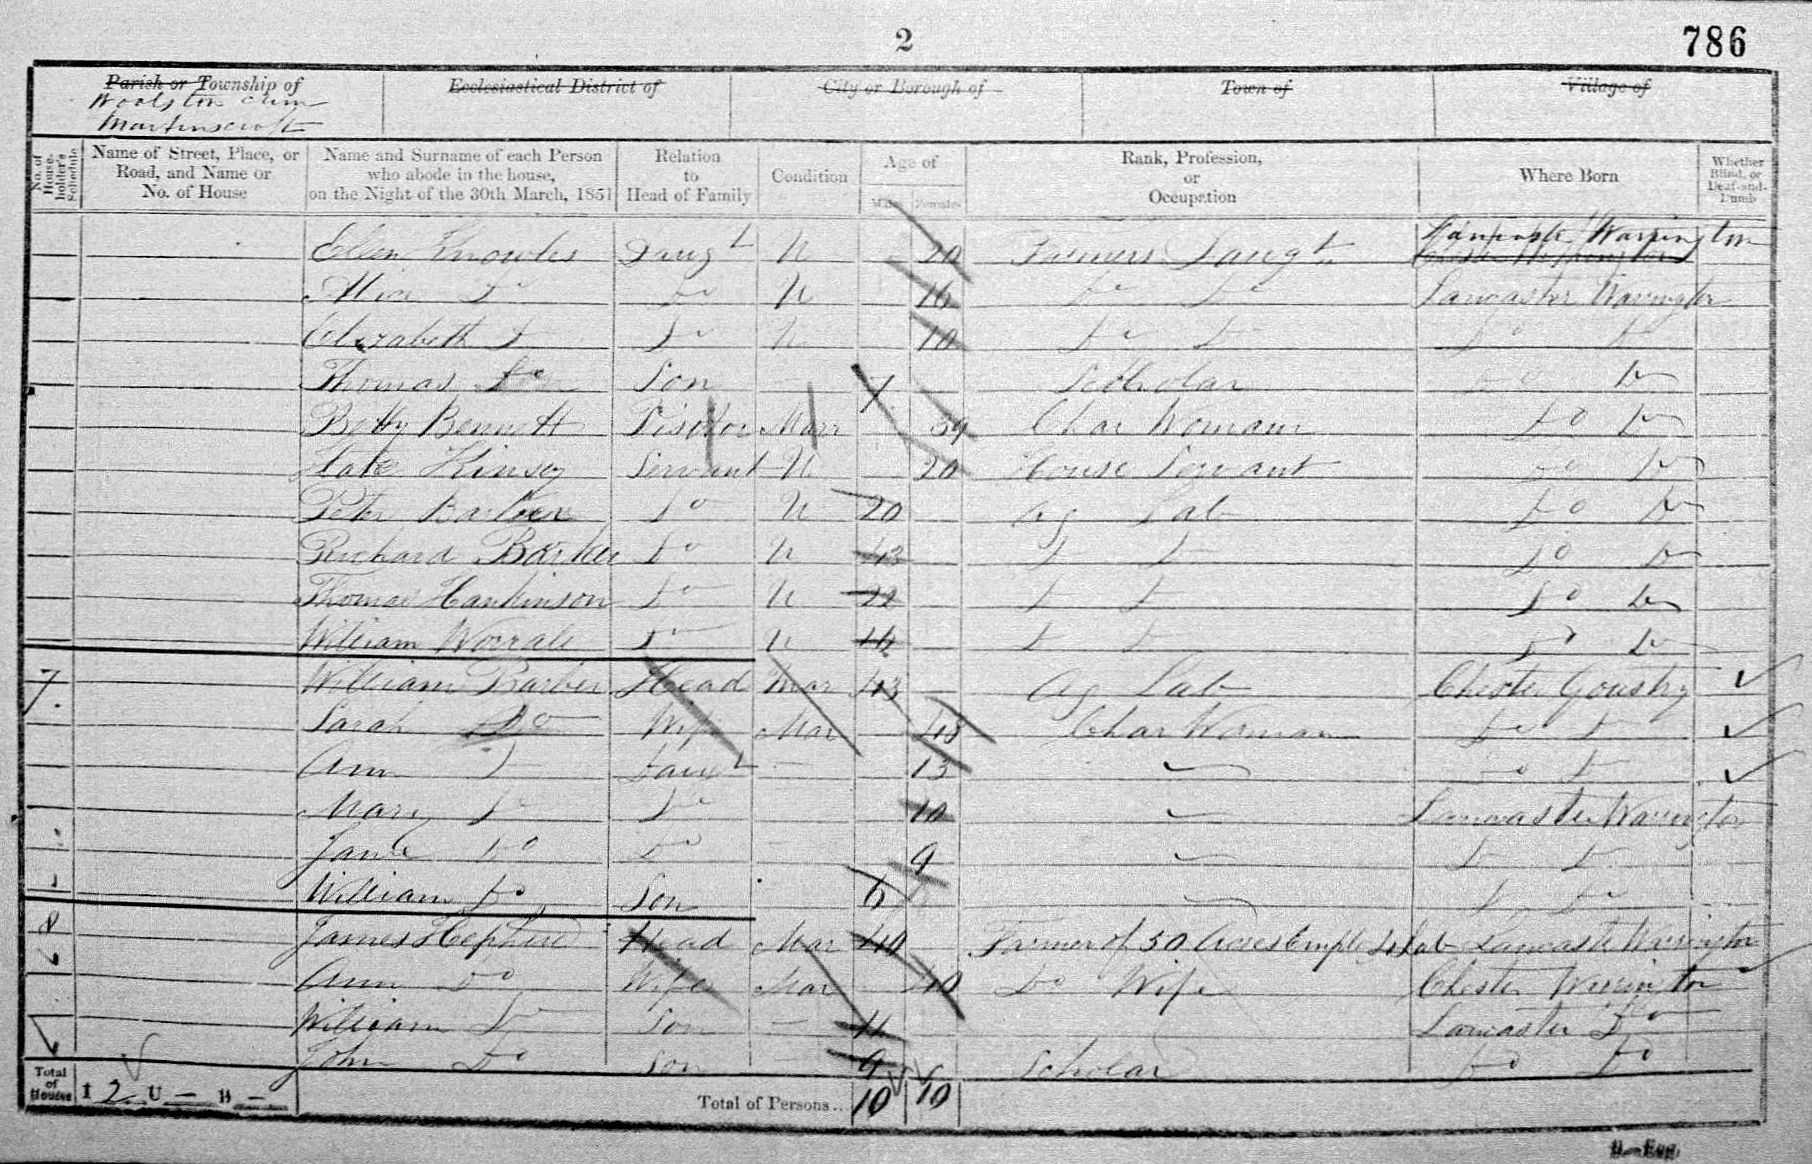 2
786
Parish or Township of Ecclesiastical District of City or Borough of Town of Village of
Woolston cum
Martinscroft
No. of House-holder's Schedule Name of Street, Place, or Road, and Name or No. of House Name and Surname of each Person who abode in the house, on the Night of the 30th March, 1851 Relation to Head of Family Condition Age of Males Females Rank, Profession, or Occupation Where Born Whether Blind, or Deaf-and-Dumb
Ellen Knowles Daugt U 20 Farmers Daugt Lancaster Warrington
Do U 16 Do Do Lancaster Warrington
Elizabeth Do Do U 10 Do Do Do Do
Thomas Do Son 7 Scholar Do Do
Betty Bennett Visitor Marr 39 Char Woman Do Do
Kinsey Servant U 20 House Servant Do Do
Peter Do U 20 Ag Lab Do Do
Richard Barker Do U Do Do Do Do
Thomas Hankinson Do U 22 Do Do Do Do
William Worrall Do U 14 Do Do Do Do
7 William Barber Head Mar 43 Ag Lab Chester Goustry
Sarah Do Wife Mar 48 Char Woman Do Do
Ann Do Daut 13 Do Do
Mary Do Do 10 Lancaster Warrington
Jane Do Do 9 Do Do
William Do Son 6 Do Do
8 James Head Mar 40 Farmer of 50 Acres Empl Lab Lancaster Warrington
Ann Do Wife Mar 40 Do Wife Chester Warrington
William Do Son 11 Lancaster Do
John Do Son 9 Scholar Do Do
Total of Houses I 2 U — B — Total of Persons.. 10 10